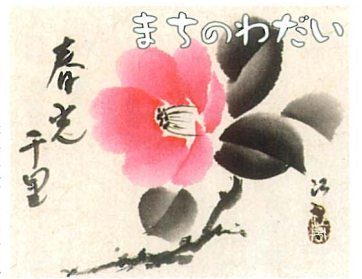 まちのわだい
春光
千里